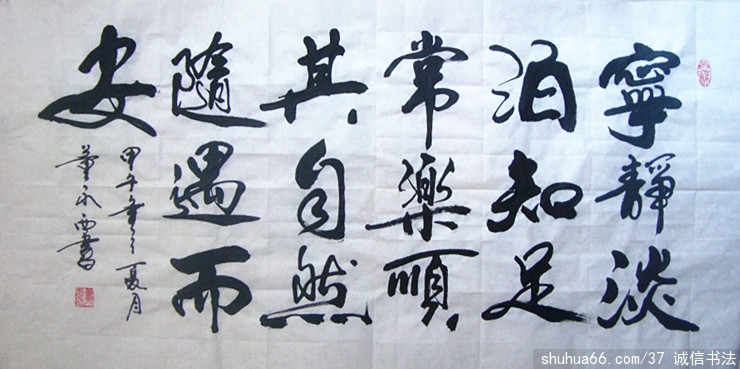 寧靜淡
泊知足
常樂順
其自然
隨遇而
安
甲午年之夏月
董永西書
shuhua66.com/37 诚信书法